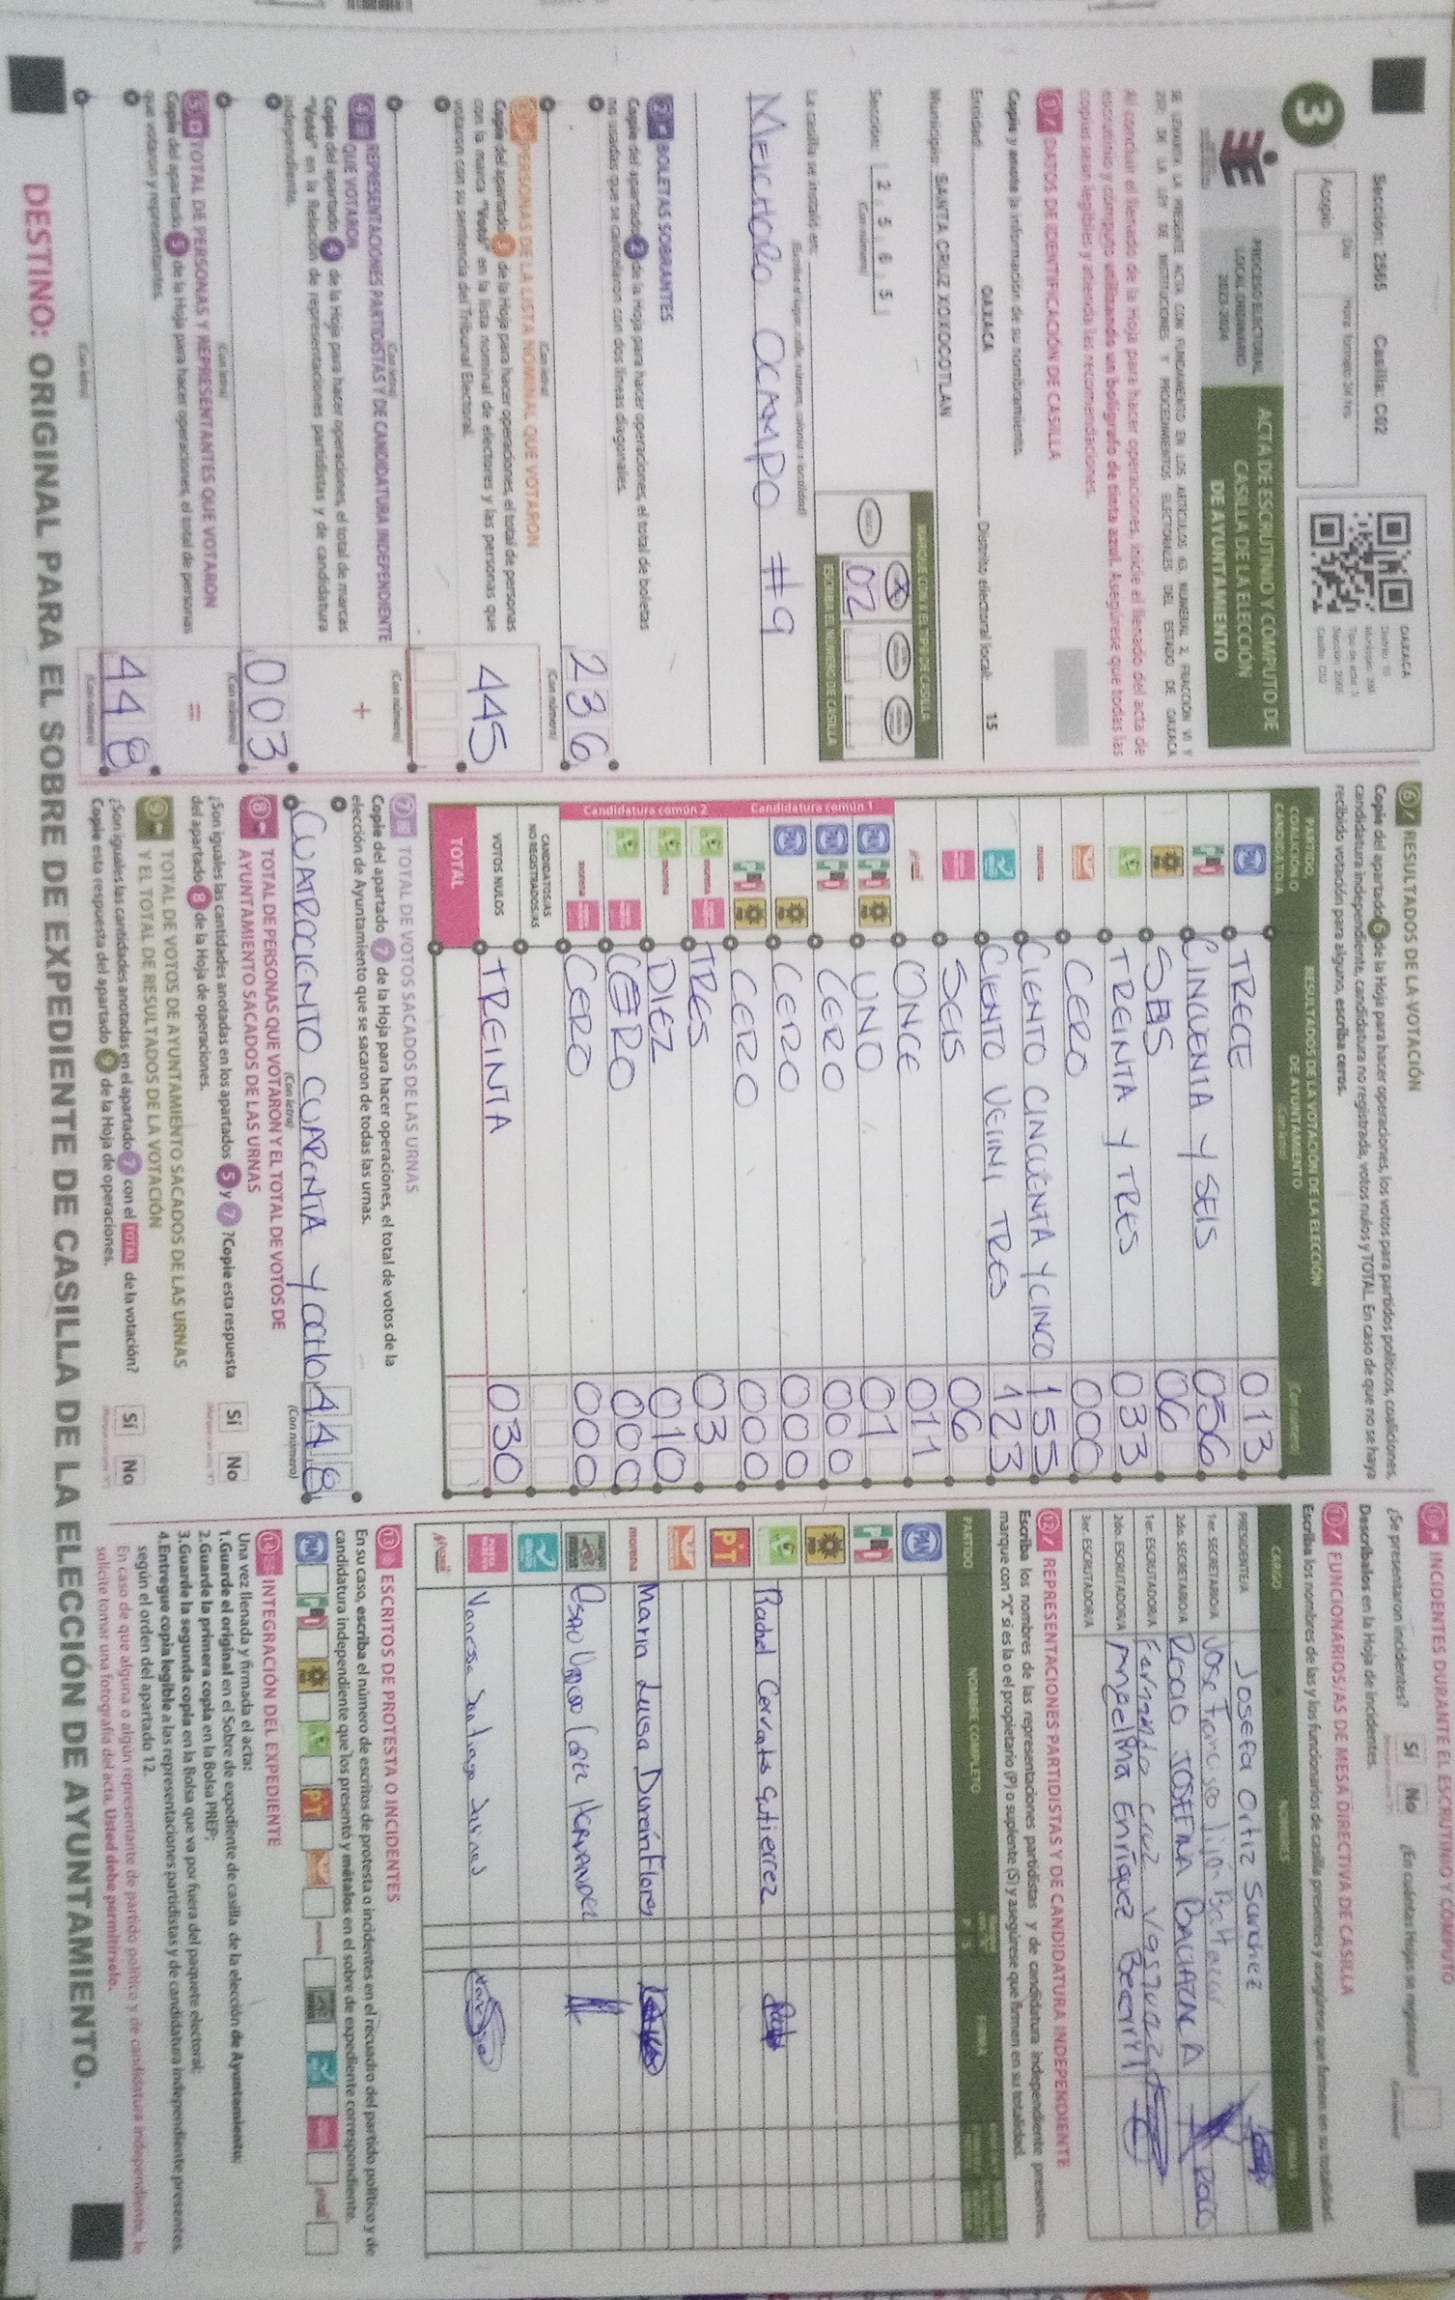 Sección: 2565 Casilla: C02
3
Acopio
Día
Hora formato 24 hrs.
OAXACA
PROCESO ELECTORAL
LOCAL ORDINARIO
2023-2024
ACTA DE ESCRUTINIO Y CÓMPUTO DE
CASILLA DE LA ELECCIÓN
DE AYUNTAMIENTO
SE LEVANTA LA PRESENTE ACTA CON FUNDAMENTO EN LOS ARTÍCULOS 63, NUMERAL 2, FRACCIÓN VI Y
DE LA LEY DE INSTITUCIONES Y PROCEDIMIENTOS ELECTORALES DEL ESTADO DE OAXACA
Al concluir el llenado de la Hoja para hacer operaciones, inicie el llenado del acta de
escrutinio y cómputo utilizando un bolígrafo de tinta azul. Asegúrese que todas las
copias sean legibles y atienda las recomendaciones.
1 DATOS DE IDENTIFICACIÓN DE CASILLA
Copie y anote la información de su nombramiento.
Entidad: OAXACA Distrito electoral local: 15
Municipio: SANTA CRUZ XOXOCOTLAN
Sección: 2 5 6 5
(Con número)
MARQUE CON X EL TIPO DE CASILLA
X
ESCRIBA EL NÚMERO DE CASILLA
02
La casilla se instaló en:
(Escriba el lugar: calle, número, colonia o localidad)
MELCHORO OCAMPO #9
2 BOLETAS SOBRANTES
Copie del apartado 2 de la Hoja para hacer operaciones, el total de boletas
no usadas que se cancelaron con dos líneas diagonales.
236
(Con letra) (Con número)
3 PERSONAS DE LA LISTA NOMINAL QUE VOTARON
Copie del apartado 3 de la Hoja para hacer operaciones, el total de personas
con la marca "Votó" en la lista nominal de electores y las personas que
votaron con su sentencia del Tribunal Electoral.
445
(Con letra) (Con número)
4 REPRESENTACIONES PARTIDISTAS Y DE CANDIDATURA INDEPENDIENTE
QUE VOTARON
Copie del apartado 4 de la Hoja para hacer operaciones, el total de marcas
"Votó" en la Relación de representaciones partidistas y de candidatura
independiente.
+
003
(Con letra) (Con número)
5 TOTAL DE PERSONAS Y REPRESENTANTES QUE VOTARON
Copie del apartado 5 de la Hoja para hacer operaciones, el total de personas
que votaron y representantes.
=
448
(Con letra) (Con número)
6 RESULTADOS DE LA VOTACIÓN
Copie del apartado 6 de la Hoja para hacer operaciones, los votos para partidos políticos, coaliciones,
candidatura independiente, candidatura no registrada, votos nulos y TOTAL. En caso de que no se haya
recibido votación para alguno, escriba ceros.
PARTIDO, COALICIÓN O CANDIDATO/A
RESULTADOS DE LA VOTACIÓN DE LA ELECCIÓN
DE AYUNTAMIENTO
(Con letra) (Con número)
PAN TRECE 013
PRI CINCUENTA Y SEIS 056
PRD SEIS 06
TREINTA Y TRES 033
CERO 000
morena CIENTO CINCUENTA Y CINCO 155
CIENTO VEINI TRES 123
SEIS 06
ONCE 011
Candidatura común 1
PAN PRI PRD UNO 01
PAN PRI CERO 000
PAN PRD CERO 000
PRI PRD CERO 000
Candidatura común 2
morena TRES 03
morena DIEZ 010
CERO 000
morena CERO 000
CANDIDATOS/AS
NO REGISTRADOS/AS
VOTOS NULOS TREINTA 030
TOTAL
7 TOTAL DE VOTOS SACADOS DE LAS URNAS
Copie del apartado 7 de la Hoja para hacer operaciones, el total de votos de la
elección de Ayuntamiento que se sacaron de todas las urnas.
CUATROCIENTO CUARENTA Y OCHO 448
(Con letra) (Con número)
8 TOTAL DE PERSONAS QUE VOTARON Y EL TOTAL DE VOTOS DE
AYUNTAMIENTO SACADOS DE LAS URNAS
¿Son iguales las cantidades anotadas en los apartados 5 y 7 ?Copie esta respuesta
del apartado 8 de la Hoja de operaciones.
Sí No
9 TOTAL DE VOTOS DE AYUNTAMIENTO SACADOS DE LAS URNAS
Y EL TOTAL DE RESULTADOS DE LA VOTACIÓN
¿Son iguales las cantidades anotadas en el apartado 7 con el TOTAL de la votación?
Copie esta respuesta del apartado 9 de la Hoja de operaciones.
Sí No
10 INCIDENTES DURANTE EL ESCRUTINIO Y CÓMPUTO
¿Se presentaron incidentes? Sí No ¿En cuántas Hojas se registraron?
Descríbalos en la Hoja de incidentes.
11 FUNCIONARIOS/AS DE MESA DIRECTIVA DE CASILLA
Escriba los nombres de las y los funcionarios de casilla presentes y asegúrese que firmen en su totalidad.
CARGO NOMBRES FIRMAS
PRESIDENTE/A Josefa Ortiz Sanchez
1er. SECRETARIO/A Jose Francisco Baltazar
2do. SECRETARIO/A ROCIO JOSEFINA
1er. ESCRUTADOR/A Fernando Cruz Vasquez
2do. ESCRUTADOR/A Angelina Enriquez Becerril
3er. ESCRUTADOR/A
12 REPRESENTACIONES PARTIDISTAS Y DE CANDIDATURA INDEPENDIENTE
Escriba los nombres de las representaciones partidistas y de candidatura independiente presentes,
marque con "X" si es la o el propietario (P) o suplente (S) y asegúrese que firmen en su totalidad.
PARTIDO NOMBRE COMPLETO P S FIRMA
PAN
PRI
PRD
Rachel Cervantes Gutierrez
PT
morena Maria Luisa Durein Flores
HERNANDEZ
Vanessa Santiago
13 ESCRITOS DE PROTESTA O INCIDENTES
En su caso, escriba el número de escritos de protesta o incidentes en el recuadro del partido político y de
candidatura independiente que los presentó y métalos en el sobre de expediente correspondiente.
PAN PRI PRD PT morena
14 INTEGRACIÓN DEL EXPEDIENTE
Una vez llenada y firmada el acta:
1.Guarde el original en el Sobre de expediente de casilla de la elección de Ayuntamiento;
2.Guarde la primera copia en la Bolsa PREP;
3.Guarde la segunda copia en la Bolsa que va por fuera del paquete electoral;
4.Entregue copia legible a las representaciones partidistas y de candidatura independiente presentes,
según el orden del apartado 12.
En caso de que alguna o algún representante de partido político y de candidatura independiente, le
solicite tomar una fotografía del acta, Usted debe permitírselo.
DESTINO: ORIGINAL PARA EL SOBRE DE EXPEDIENTE DE CASILLA DE LA ELECCIÓN DE AYUNTAMIENTO.